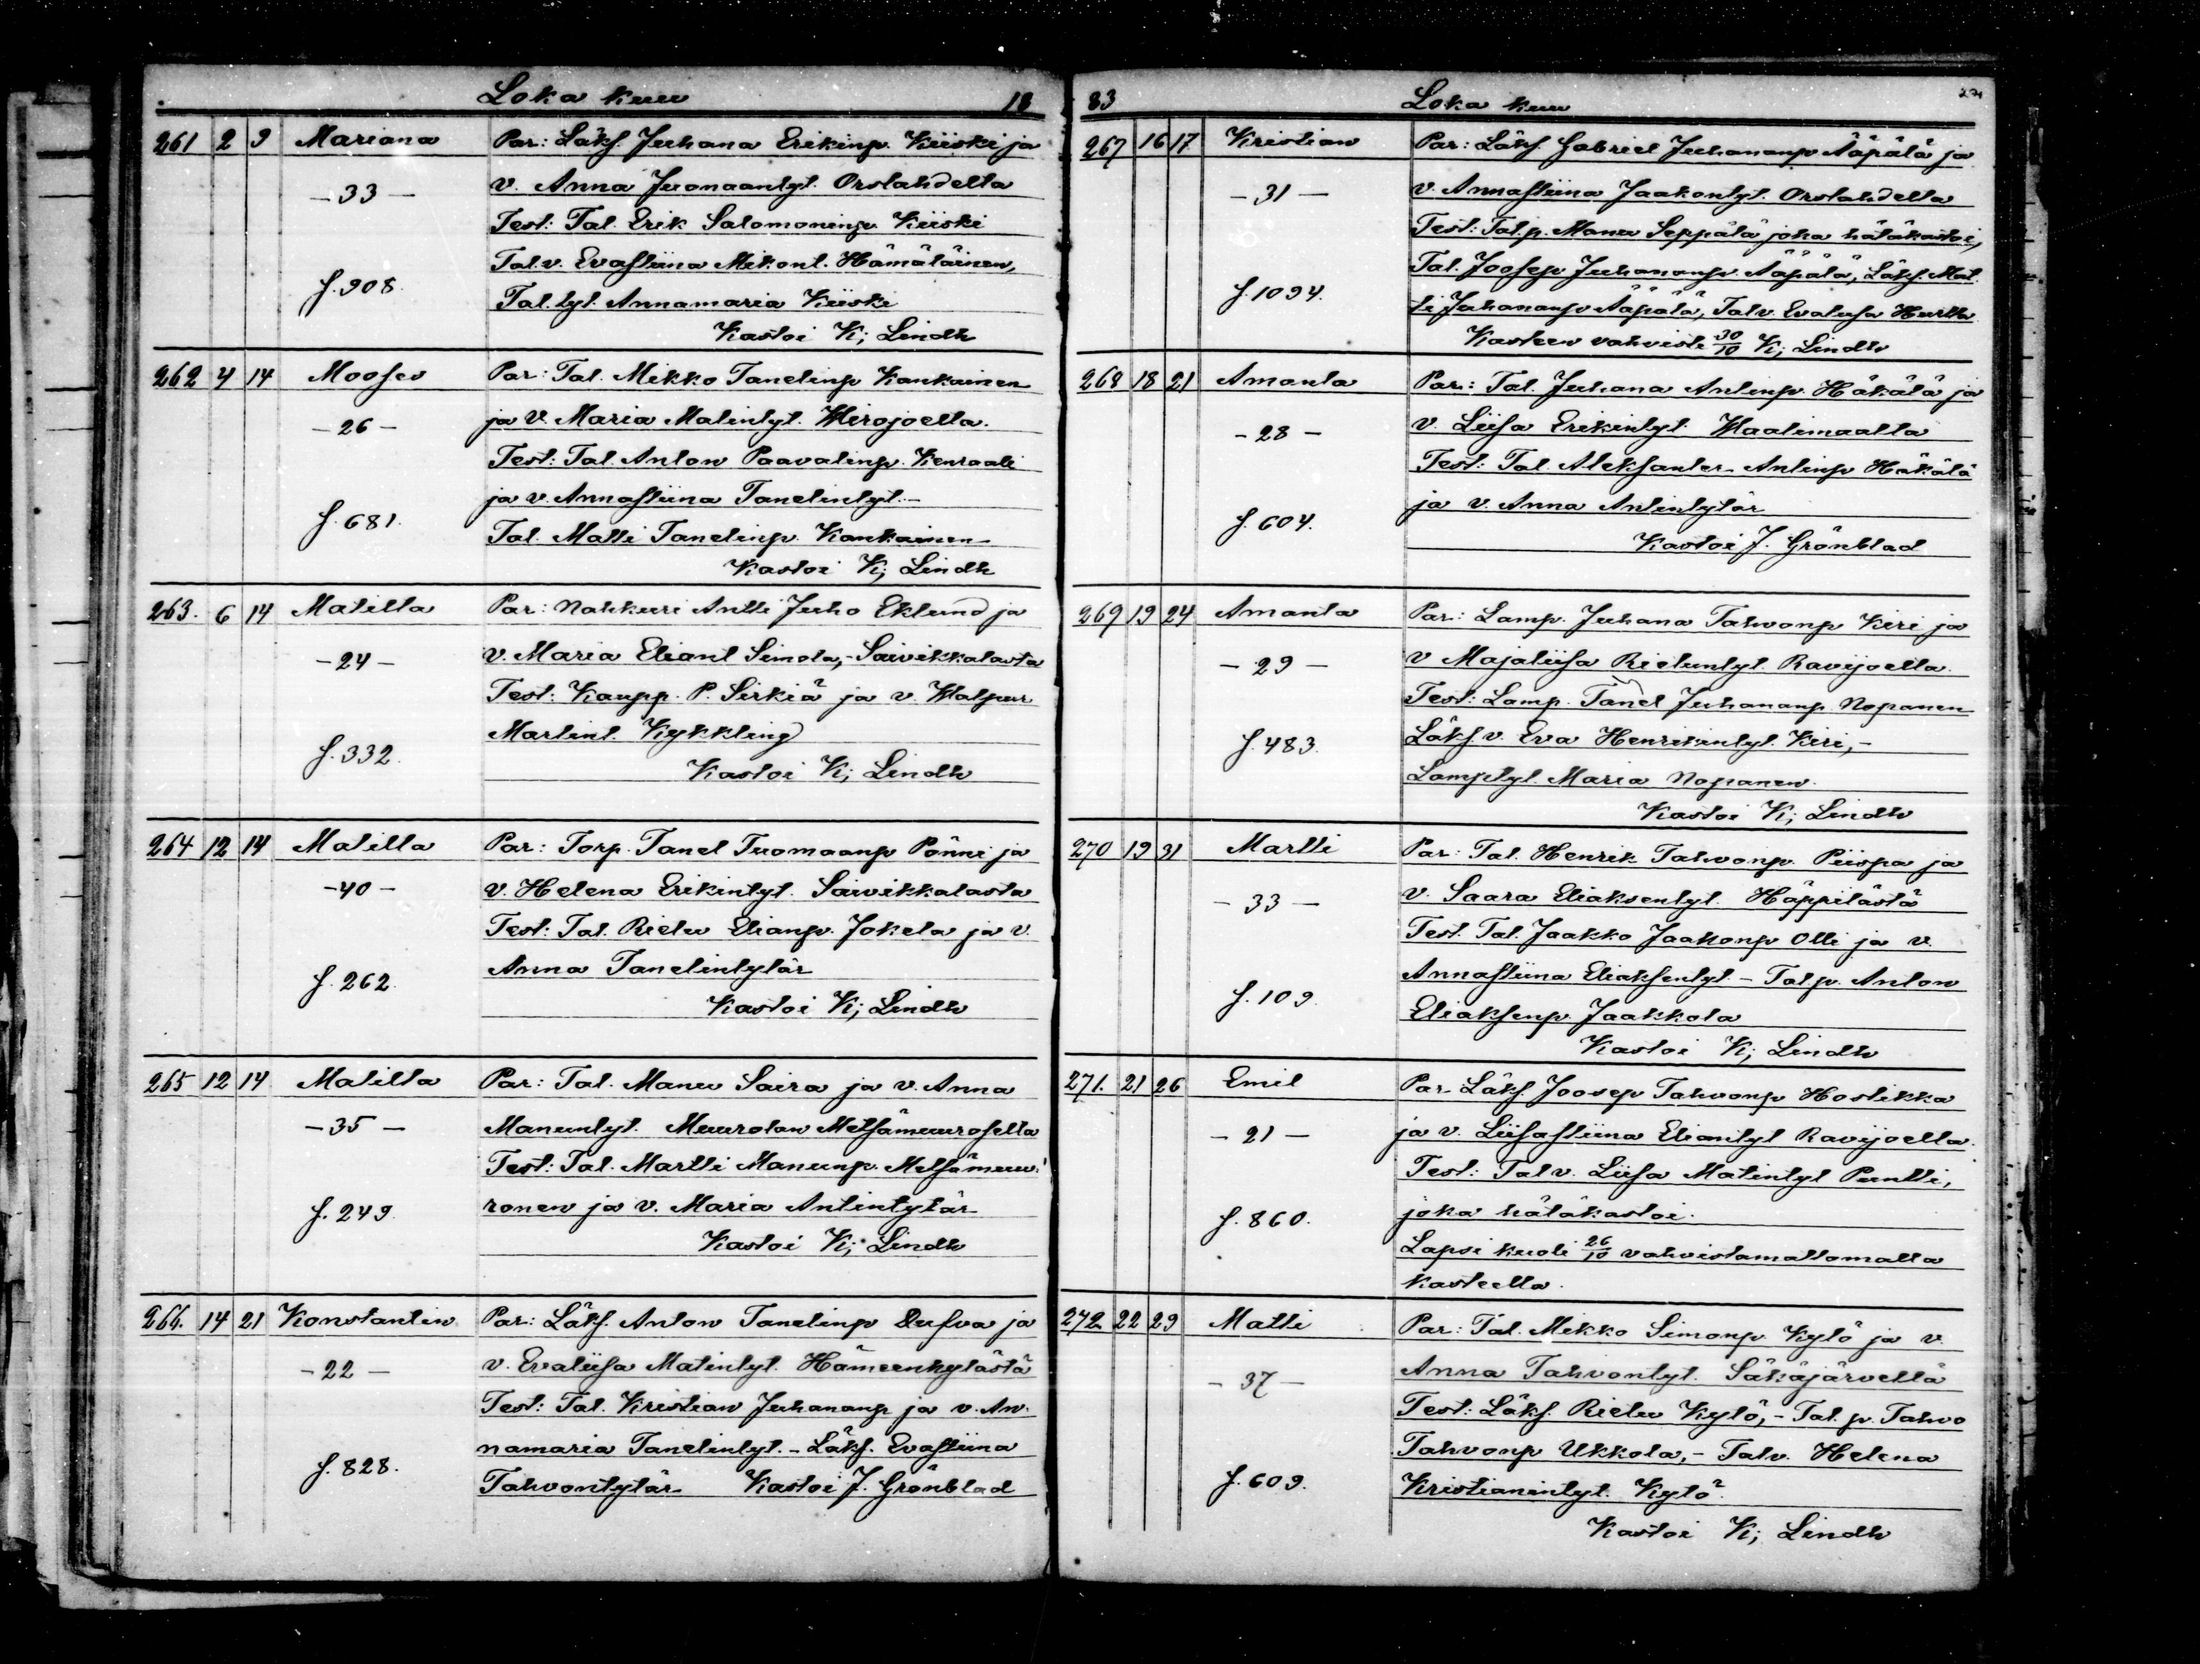 Loka kuu 18
261 2 9 Mariana Par: Läks. Juhana Erikinp. Kiiski ja
-33- v. Anna Juonaantyt. Orslahdella
Test: Tal. Erik Salomoninp. Kiiski
f. 908. Tal.v. Evastiina Mikont. Hämäläinen,
Tal.tyt. Annamaria Kiiski
Kastoi K; Lindh
262 4 14 Mooses Par: Tal. Mikko Tanelinp Kankainen
-26- ja v. Maria Matintyt. Wirojoella.
Test: Tal. Anton Paavalinp. Kenraali
ja v. Annastiina Tanelintyt.-
f. 681. Tal. Matti Tanelinp. Kankainen
Kastoi K; Lindh
263. 6 14 Matilta Par: Nahkuri Antti Juho Eklund ja
-24- v. Maria Eliant Simola,- Saivikkalasta
Test: Kaupp. P. Sirkiä ja v. Walpur
f. 332. Martint. Kykkling
Kastoi K; Lindh
264 12 14 Matilta Par: Torp. Tanel Tuomaanp Pönni ja
-40- v. Helena Erikintyt. Saivikkalasta
Test: Tal. Rietu Elianp. Jokela ja v.
f. 262. Anna Tanelintytär
Kastoi K; Lindh
265 12 14 Matilta Par: Tal. Manu Saira ja v. Anna
-35- Manuntyt. Muurolan Metsämuurosella
Test: Tal. Martti Manunp. Metsämuu-
f. 249. ronen ja v. Maria Antintytär
Kastoi K; Lindh
266. 14 21 Konstantin Par: Läks. Anton Tanelinp Dufva ja
-22- v. Evaliisa Matintyt. Hämeenkylästä
Test: Tal. Kristian Juhananp ja v. An-
namaria Tanelintyt.- Läks. Evastiina
f. 828. Tahvontytär Kastoi J. Grönblad
83 Loka kuu
267 16 17 Kristian Par: Läks. Gabriel Juhananp Ääpälä ja
-31- v. Annastiina Jaakontyt. Orslahdella
Test: Tal.p. Manu Seppälä joka hätäkastoi,
Tal. Joosep Juhananp Ääpälä, Läks. Mat-
f. 1094. ti Juhananp Ääpälä, Talv. Evaliisa Hurtta
Kasteen vahvisti 30/10 K; Lindh
268 18 21 Amanta Par: Tal. Juhana Antinp. Häkälä ja
-28- v. Liisa Erikintyt. Waalimaalla
Test: Tal. Aleksanter Antinp Häkälä
f. 604. ja v. Anna Antintytär
Kastoi J. Grönblad
269 19 24 Amanta Par: Lamp. Juhana Tahvonp Kiri ja
-29- v Majaliisa Rietuntyt. Ravijoella.
Test: Lamp. Tanel Juhananp Nopanen
f. 483. Läks.v. Eva Henrikintyt. Kiri,-
Lamptyt. Maria Nopanen.
Kastoi K; Lindh
270 19 31 Martti Par: Tal. Henrik Tahvonp. Piispa ja
-33- v. Saara Eliaksentyt. Häppilästä
Test. Tal. Jaakko Jaakonp Olli ja v.
f. 109. Annastiina Eliaksentyt - Tal.p. Anton
Eliaksenp Jaakkola
Kastoi K; Lindh
271. 21 26 Emil Par Läks. Joosep Tahvonp Hostikka
-21- ja v. Liisastiina Eliantyt Ravijoella.
Test: Talv. Liisa Matintyt Puntti,
f. 860. joka hätäkastoi.
Lapsi kuoli 26/10 vahvistamattomalla
kasteella.
272 22 29 Matti Par: Tal. Mikko Simonp. Kylö ja v.
-37- Anna Tahvontyt. Säkäjärvellä
Test: Läks. Rietu Kylö,- Tal. p. Tahvo
Tahvonp Ukkola,- Talv. Helena
f. 609. Kristianintyt. Kylö.
Kastoi K; Lindh